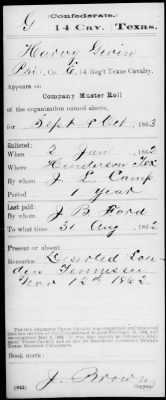 (Confederate.)
G 14 Cav. Texas.
Harvy Givin
Pri, Co. E, 14 Reg't Texas Cavalry.
Appears on
Company Muster Roll
of the organization named above,
for Sept & Oct, 1863
Enlisted:
When 2 Jan, 1862
Where Henderson Tex
By whom J. L. Camp
Period 1 Year
Last paid:
By whom J B Ford
To what time 31 Aug, 1862
Present or absent
Remarks: Deserted Lou-
den Tennessee
Nov 12th 1862.
Book mark:
J. Brown
(642) Copyist.